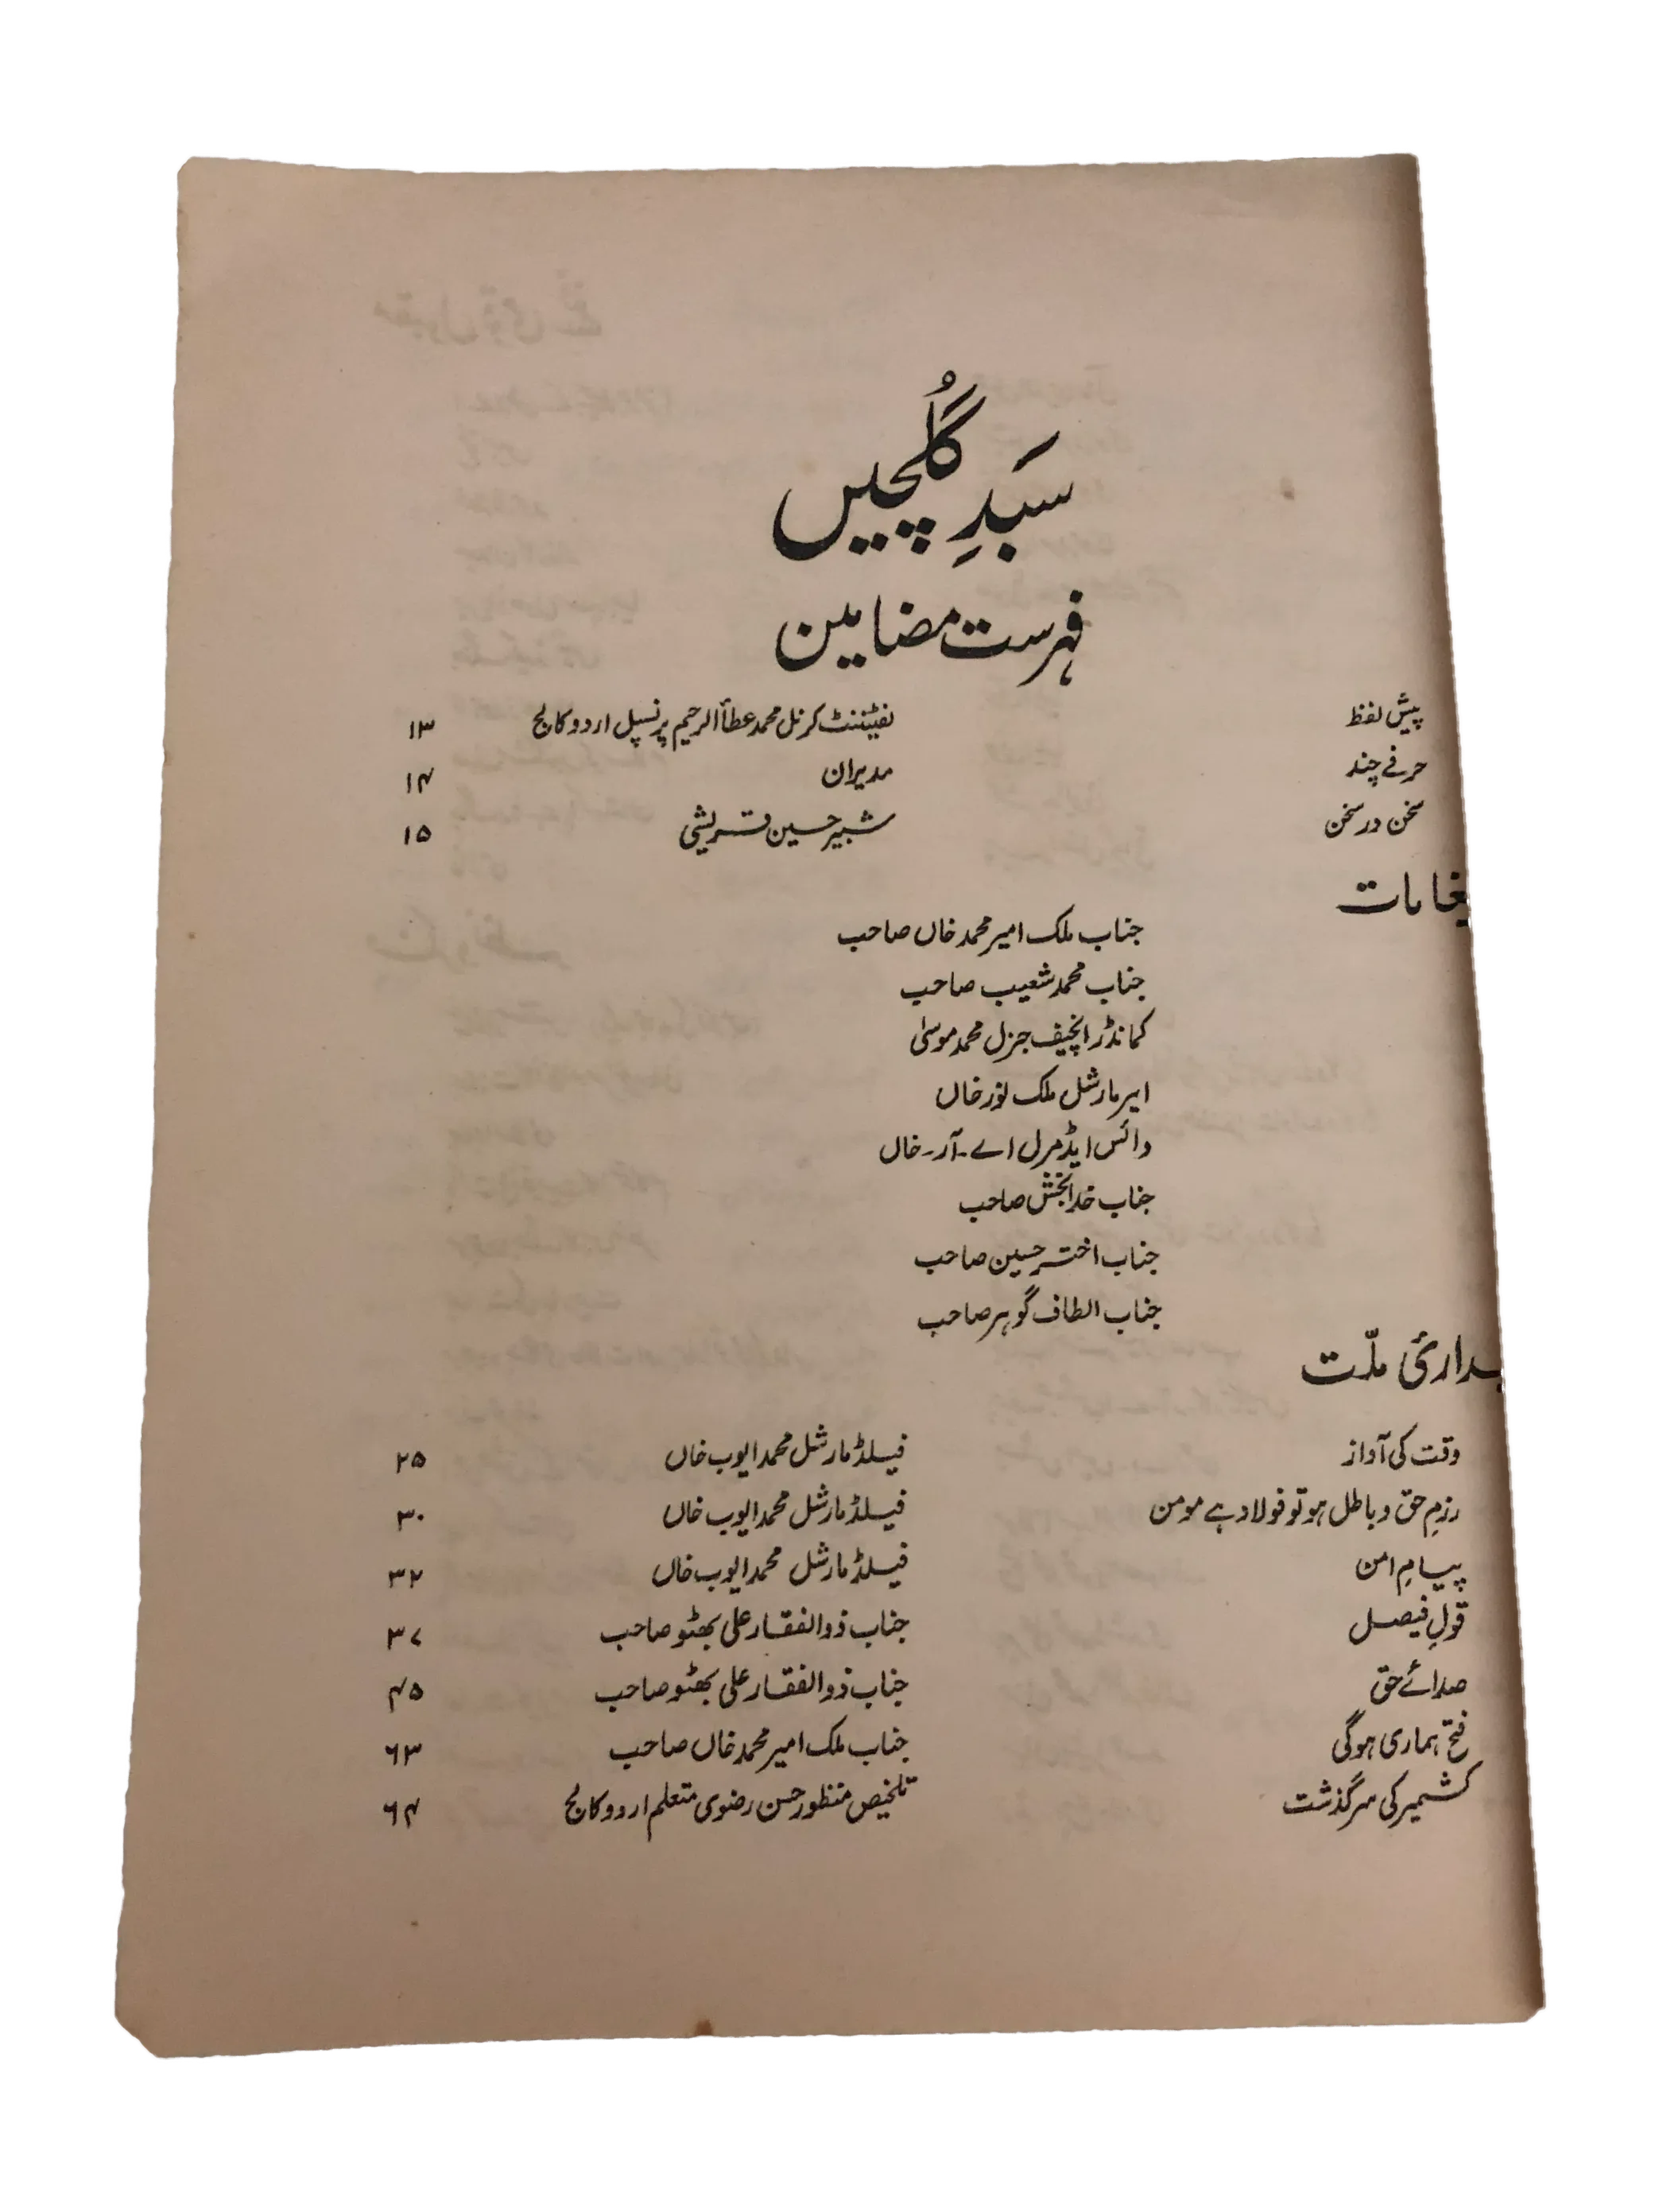 سَبَدِ گُلچیں
فہرست مضامین
پیش لفظ لفٹیننٹ کرنل محمد عطأ الرحیم پرنسپل اردو کالج ۱۳
حرفے چند مدیران ۱۴
سخن در سخن شبیر حسین قریشی ۱۵
یغامات
جناب ملک امیر محمد خاں صاحب
جناب محمد شعیب صاحب
کمانڈر انچیف جنرل محمد موسیٰ
ایر مارشل ملک نور خاں
وائس ایڈمرل اے۔ آر۔ خاں
جناب خدا بخش صاحب
جناب اختر حسین صاحب
جناب الطاف گوہر صاحب
یداریٔ ملّت
وقت کی آواز فیلڈ مارشل محمد ایوب خاں ۲۵
رزمِ حق و باطل ہو تو فولاد ہے مومن فیلڈ مارشل محمد ایوب خاں ۳۰
پیامِ امن فیلڈ مارشل محمد ایوب خاں ۳۲
قولِ فیصل جناب ذوالفقار علی بھٹو صاحب ۳۷
صدائے حق جناب ذوالفقار علی بھٹو صاحب ۴۵
فتح ہماری ہوگی جناب ملک امیر محمد خاں صاحب ۶۳
کشمیر کی سرگذشت تلخیص منظور حسن رضوی متعلم اردو کالج ۶۴